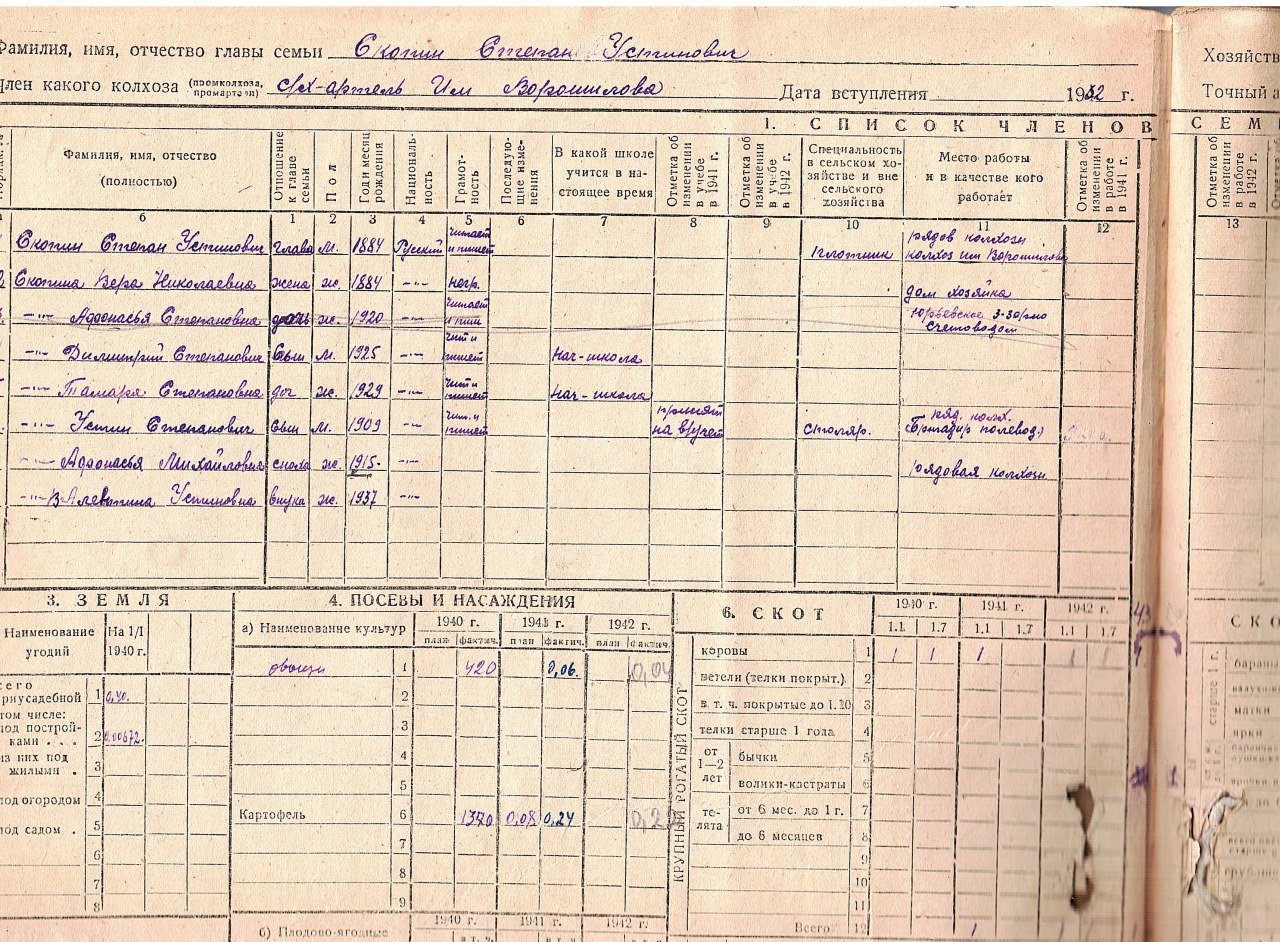 Фамилия, имя, отчество главы семьи Скопин Степан Устинович
Член какого колхоза (промколхоза, промартели) с/х-артель Им Ворошилова Дата вступления 1932 г.
Хозяйств
Точный а
1. СПИСОК ЧЛЕНОВ СЕМ
Фамилия, имя, отчество (полностью) Отношение к главе семьи Пол Год и месяц рождения Националь-ность Грамот-ность Последую-щие изме-нения В какой школе учится в на-стоящее время Отметка об изменении в учебе в 1941 г. Отметка об изменении в учебе в 1942 г. Специальность в сельском хо-зяйстве и вне сельского хозяйства Место работы и в качестве кого работает Отметка об изменении в работе в 1941 г. Отметка об изменении в работе в 1942 г.
б 1 2 3 4 5 6 7 8 9 10 11 12 13
Скопин Степан Устинович глава м. 1884 Русский читает и пишет плотник рядов колхозн колхоз им Ворошилова
2 Скопина Вера Николаевна жена ж. 1884 -"- негр. дом хозяйка
3. -"- Афонасья Степановна дочь ж. 1920 -"- читает и пиш Юрьевское Счетоводом
-"- Димитрий Степанович Сын м. 1925 -"- чит и пишет Нач-школа
-"- Тамара Степановна доч ж. 1929 -"- чит и пишет Нач-школа
-"- Устин Степанович Сын м. 1909 -"- чит. и пишет принят на в/учет столяр. ряд. колх. (бригадир полевод.)
-"- Афонасья Михайлович сноха ж. 1915- -"- рядовая колхозн.
-"- Алевтина Устиновна внука ж. 1937 -"-
3. ЗЕМЛЯ
Наименование угодий На 1/I 1940 г.
сего приусадебной 1 0,40.
том числе: под построй-ками . . . 2 0,00672.
из них под жилыми . 3
под огородом 4
под садом . 5
6
7
8
4. ПОСЕВЫ И НАСАЖДЕНИЯ
а) Наименование культур 1940 г. 1941 г. 1942 г.
план фактич. план фактич. план фактич.
овощи 1 420 0,06. 0,04
2
3
4
5
Картофель 6 1370 0,08 0,24
7
8
9
б) Плодово-ягодные 1940 г. 1941 г. 1942 г.
6. СКОТ 1940 г. 1941 г. 1942 г.
1.1 1.7 1.1 1.7 1.1 1.7
КРУПНЫЙ РОГАТЫЙ СКОТ
коровы 1 1 1 1 1 1
нетели (телки покрыт.) 2
в т. ч. покрытые до 1.10 3
телки старше 1 года 4
от 1—2 лет бычки 5
волики-кастраты 6
те-лята от 6 мес. до 1 г. 7
до 6 месяцев 8
9
10
11
Всего 12 1 1 1
43
СКО
старше 1 г.
бараны
матки
ярки